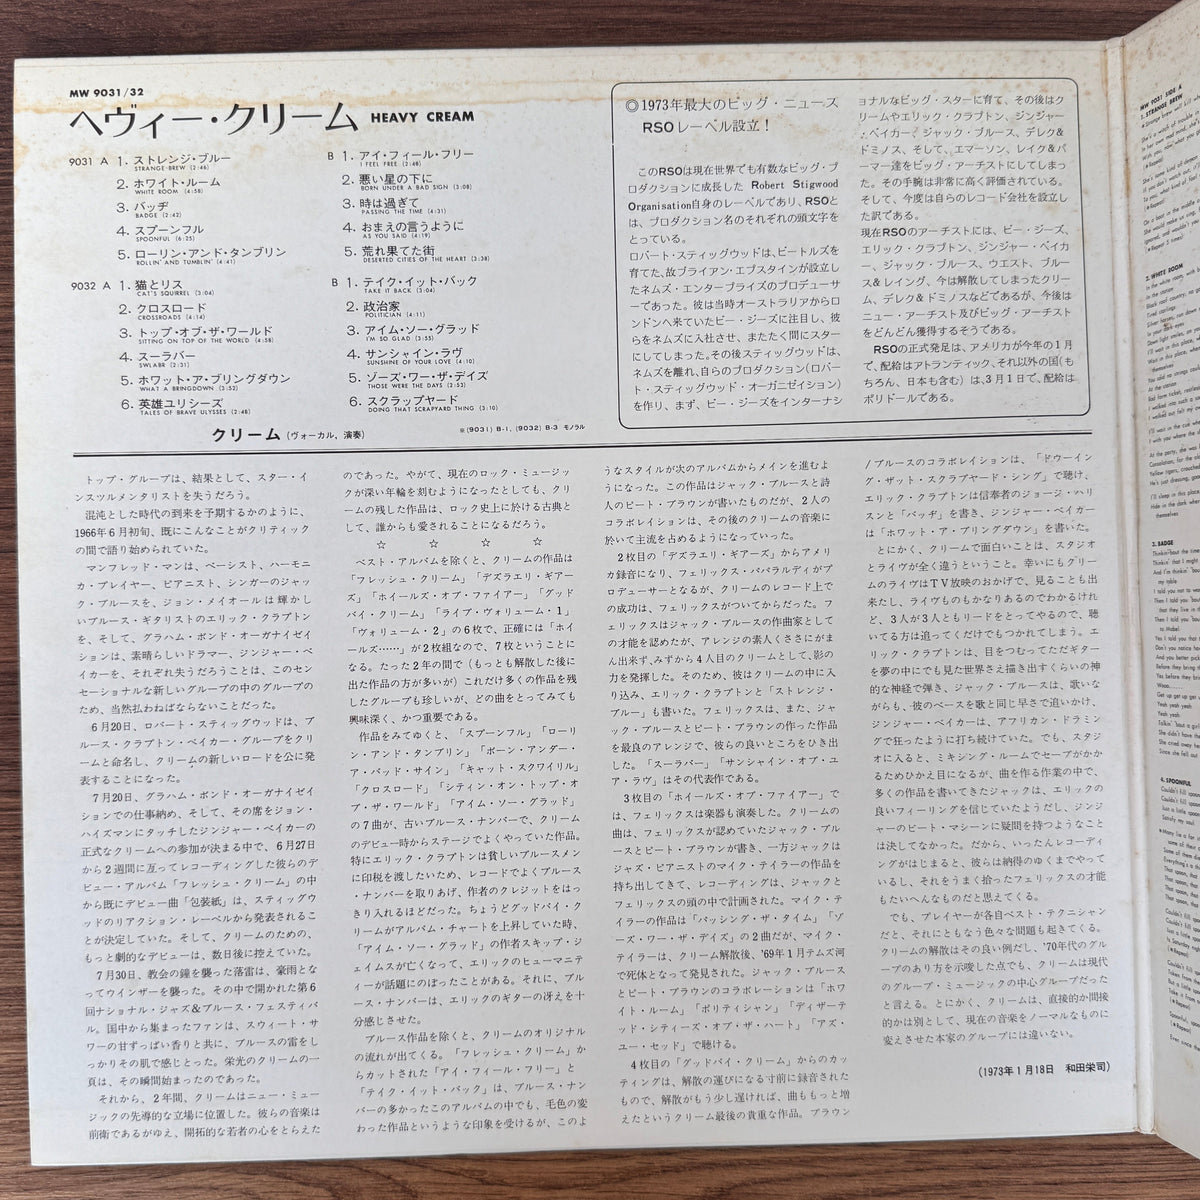 MW 9031/32
ヘヴィー・クリーム HEAVY CREAM
9031 A 1. ストレンジ・ブルー
STRANGE BREW (2:46)
2. ホワイト・ルーム
WHITE ROOM (4:58)
3. バッヂ
BADGE (2:42)
4. スプーンフル
SPOONFUL (6:25)
5. ローリン・アンド・タンブリン
ROLLIN' AND TUMBLIN' (4:41)
B 1. アイ・フィール・フリー
I FEEL FREE (2:48)
2. 悪い星の下に
BORN UNDER A BAD SIGN (3:08)
3. 時は過ぎて
PASSING THE TIME (4:31)
4. おまえの言うように
AS YOU SAID (4:19)
5. 荒れ果てた街
DESERTED CITIES OF THE HEART (3:38)
9032 A 1. 猫とリス
CAT'S SQUIRREL (3:04)
2. クロスロード
CROSSROADS (4:14)
3. トップ・オブ・ザ・ワールド
SITTING ON TOP OF THE WORLD (4:58)
4. スーラバー
SWLABR (2:31)
5. ホワット・ア・ブリングダウン
WHAT A BRINGDOWN (3:52)
6. 英雄ユリシーズ
TALES OF BRAVE ULYSSES (2:48)
B 1. テイク・イット・バック
TAKE IT BACK (3:04)
2. 政治家
POLITICIAN (4:11)
3. アイム・ソー・グラッド
I'M SO GLAD (3:55)
4. サンシャイン・ラヴ
SUNSHINE OF YOUR LOVE (4:10)
5. ゾーズ・ワー・ザ・デイズ
THOSE WERE THE DAYS (2:53)
6. スクラップヤード
DOING THAT SCRAPYARD THING (3:10)
クリーム (ヴォーカル, 演奏)
※(9031) B-1, (9032) B-3 モノラル
◎1973年最大のビッグ・ニュース
RSOレーベル設立！
このRSOは現在世界でも有数なビッグ・プ
ロダクションに成長した Robert Stigwood
Organisation自身のレーベルであり、RSOと
は、プロダクション名のそれぞれの頭文字を
とっている。
ロバート・スティッグウッドは、ビートルズを
育てた、故ブライアン・エプスタインが設立し
たネムズ・エンタープライズのプロデューサ
ーであった。彼は当時オーストラリアからロ
ンドンへ来ていたビー・ジーズに注目し、彼
らをネムズに入社させ、またたく間にスター
にしてしまった。その後スティッグウッドは、
ネムズを離れ、自らのプロダクション(ロバ
ート・スティッグウッド・オーガニゼイション)
を作り、まず、ビー・ジーズをインターナシ
ョナルなビッグ・スターに育て、その後はク
リームやエリック・クラプトン、ジンジャー
・ベイカー、ジャック・ブルース、デレク&
ドミノス、そして、エマーソン、レイク&パ
ーマー達をビッグ・アーチストにしてしまっ
た。その手腕は非常に高く評価されている。
そして、今度は自らのレコード会社を設立し
た訳である。
現在RSOのアーチストには、ビー・ジーズ、
エリック・クラプトン、ジンジャー・ベイカ
ー、ジャック・ブルース、ウエスト、ブルー
ス&レイング、今は解散してしまったクリー
ム、デレク&ドミノスなどであるが、今後は
ニュー・アーチスト及びビッグ・アーチスト
をどんどん獲得するそうである。
RSOの正式発足は、アメリカが今年の1月
で、配給はアトランティック、それ以外の国(も
ちろん、日本も含む)は、3月1日で、配給は
ポリドールである。
トップ・グループは、結果として、スター・イ
ンスツルメンタリストを失うだろう。
混沌とした時代の到来を予期するかのように、
1966年6月初旬、既にこんなことがクリティック
の間で語り始められていた。
マンフレッド・マンは、ベーシスト、ハーモニ
カ・プレイヤー、ピアニスト、シンガーのジャッ
ク・ブルースを、ジョン・メイオールは輝かし
いブルース・ギタリストのエリック・クラプトン
を、そして、グラハム・ボンド・オーガナイゼイ
ションは、素晴らしいドラマー、ジンジャー・ベ
イカーを、それぞれ失うだろうことは、このセン
セーショナルな新しいグループの中のグループの
ため、当然払わねばならないことだった。
6月20日、ロバート・スティッグウッドは、ブ
ルース・クラプトン・ベイカー・グループをクリ
ームと命名し、クリームの新しいロードを公に発
表することになった。
7月20日、グラハム・ボンド・オーガナイゼイ
ションでの仕事納め、そして、その席をジョン・
ハイズマンにタッチしたジンジャー・ベイカーの
正式なクリームへの参加が決まる中で、6月27日
から2週間に亙ってレコーディングした彼らのデ
ビュー・アルバム「フレッシュ・クリーム」の中
から既にデビュー曲「包装紙」は、スティッグウ
ッドのリアクション・レーベルから発表されるこ
とが決定していた。そして、クリームのための、
もっと劇的なデビューは、数日後に控えていた。
7月30日、教会の鐘を襲った落雷は、豪雨とな
ってウインザーを襲った。その中で開かれた第6
回ナショナル・ジャズ&ブルース・フェスティバ
ル。国中から集まったファンは、スウィート・サ
ワーの甘ずっぱい香りと共に、ブルースの雷をし
っかりその肌で感じとった。栄光のクリームの一
頁は、その瞬間始まったのであった。
それから、2年間、クリームはニュー・ミュー
ジックの先導的な立場に位置した。彼らの音楽は
前衛であるがゆえ、開拓的な若者の心をとらえた
のであった。やがて、現在のロック・ミュージッ
クが深い年輪を刻むようになったとしても、クリ
ームの残した作品は、ロック史上に於ける古典と
して、誰からも愛されることになるだろう。
☆ ☆ ☆ ☆
ベスト・アルバムを除くと、クリームの作品は
「フレッシュ・クリーム」「デズラエリ・ギアー
ズ」「ホイールズ・オブ・ファイアー」「グッド
バイ・クリーム」「ライブ・ヴォリューム・1」
「ヴォリューム・2」の6枚で、正確には「ホイ
ールズ……」が2枚組なので、7枚ということに
なる。たった2年の間で(もっとも解散した後に
出た作品の方が多いが)これだけ多くの作品を残
したグループも珍しいが、どの曲をとってみても
興味深く、かつ重要である。
作品をみてゆくと、「スプーンフル」「ローリ
ン・アンド・タンブリン」「ボーン・アンダー・
ア・バッド・サイン」「キャット・スクワイリル」
「クロスロード」「シティン・オン・トップ・オ
ブ・ザ・ワールド」「アイム・ソー・グラッド」
の7曲が、古いブルース・ナンバーで、クリーム
のデビュー時からステージでよくやっていた作品。
特にエリック・クラプトンは貧しいブルースメン
に印税を渡したいため、レコードでよくブルース
・ナンバーを取りあげ、作者のクレジットをはっ
きり入れるほどだった。ちょうどグッドバイ・ク
リームがアルバム・チャートを上昇していた時、
「アイム・ソー・グラッド」の作者スキップ・ジ
ェイムスが亡くなって、エリックのヒューマニテ
ィーが話題にのぼったことがある。それに、ブル
ース・ナンバーは、エリックのギターの冴えを十
分感じさせた。
ブルース作品を除くと、クリームのオリジナル
の流れが出てくる。「フレッシュ・クリーム」か
らカットされた「アイ・フィール・フリー」と
「テイク・イット・バック」は、ブルース・ナン
バーの多かったこのアルバムの中でも、毛色の変
わった作品というような印象を受けるが、このよ
うなスタイルが次のアルバムからメインを進むよ
うになった。この作品はジャック・ブルースと詩
人のピート・ブラウンが書いたものだが、2人の
コラボレイションは、その後のクリームの音楽に
於いて主流を占めるようになっていった。
2枚目の「デズラエリ・ギアーズ」からアメリ
カ録音になり、フェリックス・パパラルディがプ
ロデューサーとなるが、クリームのレコード上で
の成功は、フェリックスがついてからだった。フ
ェリックスはジャック・ブルースの作曲家として
の才能を認めたが、アレンジの素人くささにがま
ん出来ず、みずから4人目のクリームとして、影の
力を発揮した。そのため、彼はクリームの中に入
り込み、エリック・クラプトンと「ストレンジ・
ブルー」も書いた。フェリックスは、また、ジャ
ック・ブルースとピート・ブラウンの作った作品
を最良のアレンジで、彼らの良いところをひき出
した。「スーラバー」「サンシャイン・オブ・ユ
ア・ラヴ」はその代表作である。
3枚目の「ホイールズ・オブ・ファイアー」で
は、フェリックスは楽器も演奏した。クリームの
曲は、フェリックスが認めていたジャック・ブル
ースとピート・ブラウンが書き、一方ジャックは
ジャズ・ピアニストのマイク・テイラーの作品を
持ち出してきて、レコーディングは、ジャックと
フェリックスの頭の中で計画された。マイク・テ
イラーの作品は「パッシング・ザ・タイム」「ゾ
ーズ・ワー・ザ・デイズ」の2曲だが、マイク・
テイラーは、クリーム解散後、'69年1月テムズ河
で死体となって発見された。ジャック・ブルース
とピート・ブラウンのコラボレーションは「ホワ
イト・ルーム」「ポリティシャン」「ディザーテ
ッド・シティーズ・オブ・ザ・ハート」「アズ・
ユー・セッド」で聴ける。
4枚目の「グッドバイ・クリーム」からのカッ
ティングは、解散の運びになる寸前に録音された
もので、解散がもう少し遅ければ、曲ももっと増
えたというクリーム最後の貴重な作品。ブラウン
/ブルースのコラボレイションは、「ドゥーイン
グ・ザット・スクラプヤード・シング」で聴け、
エリック・クラプトンは信奉者のジョージ・ハリ
スンと「バッヂ」を書き、ジンジャー・ベイカー
は「ホワット・ア・ブリングダウン」を書いた。
とにかく、クリームで面白いことは、スタジオ
とライヴが全く違うということ。幸いにもクリー
ムのライヴはTV放映のおかげで、見ることも出
来たし、ライヴものもかなりあるのでわかるけれ
ど、3人が3人ともリードをとってやるので、聴
いてる方は追ってくだけでもつかれてしまう。エ
リック・クラプトンは、目をつむってただギター
を夢の中にでも見た世界さえ描き出すくらいの神
的な神経で弾き、ジャック・ブルースは、歌いな
がらも、彼のベースを歌と同じ早さで追いかけ、
ジンジャー・ベイカーは、アフリカン・ドラミン
グで狂ったように打ち続けていた。でも、スタジ
オに入ると、ミキシング・ルームでセーブがかか
るためひかえ目になるが、曲を作る作業の中で、
多くの作品を書いてきたジャックは、エリックの
良いフィーリングを信じていたようだし、ジンジ
ャーのビート・マシーンに疑問を持つようなこと
は決してなかった。だから、いったんレコーディ
ングがはじまると、彼らは納得のゆくまでやって
いるし、それをうまく拾ったフェリックスの才能
もたいへんなものだと思えてくる。
でも、プレイヤーが各自ベスト・テクニシャン
だと、それにともなう色々な問題も起きてくる。
クリームの解散はその良い例だし、'70年代のグル
ープのあり方を示唆した点でも、クリームは現代
のグループ・ミュージックの中心グループだった
と言える。とにかく、クリームは、直接的か間接
的かは別として、現在の音楽をノーマルなものに
変えさせた本家のグループには違いない。
(1973年1月18日 和田栄司)
MW 9031 SIDE A
1. STRANGE BREW
2. WHITE ROOM
3. BADGE
4. SPOONFUL